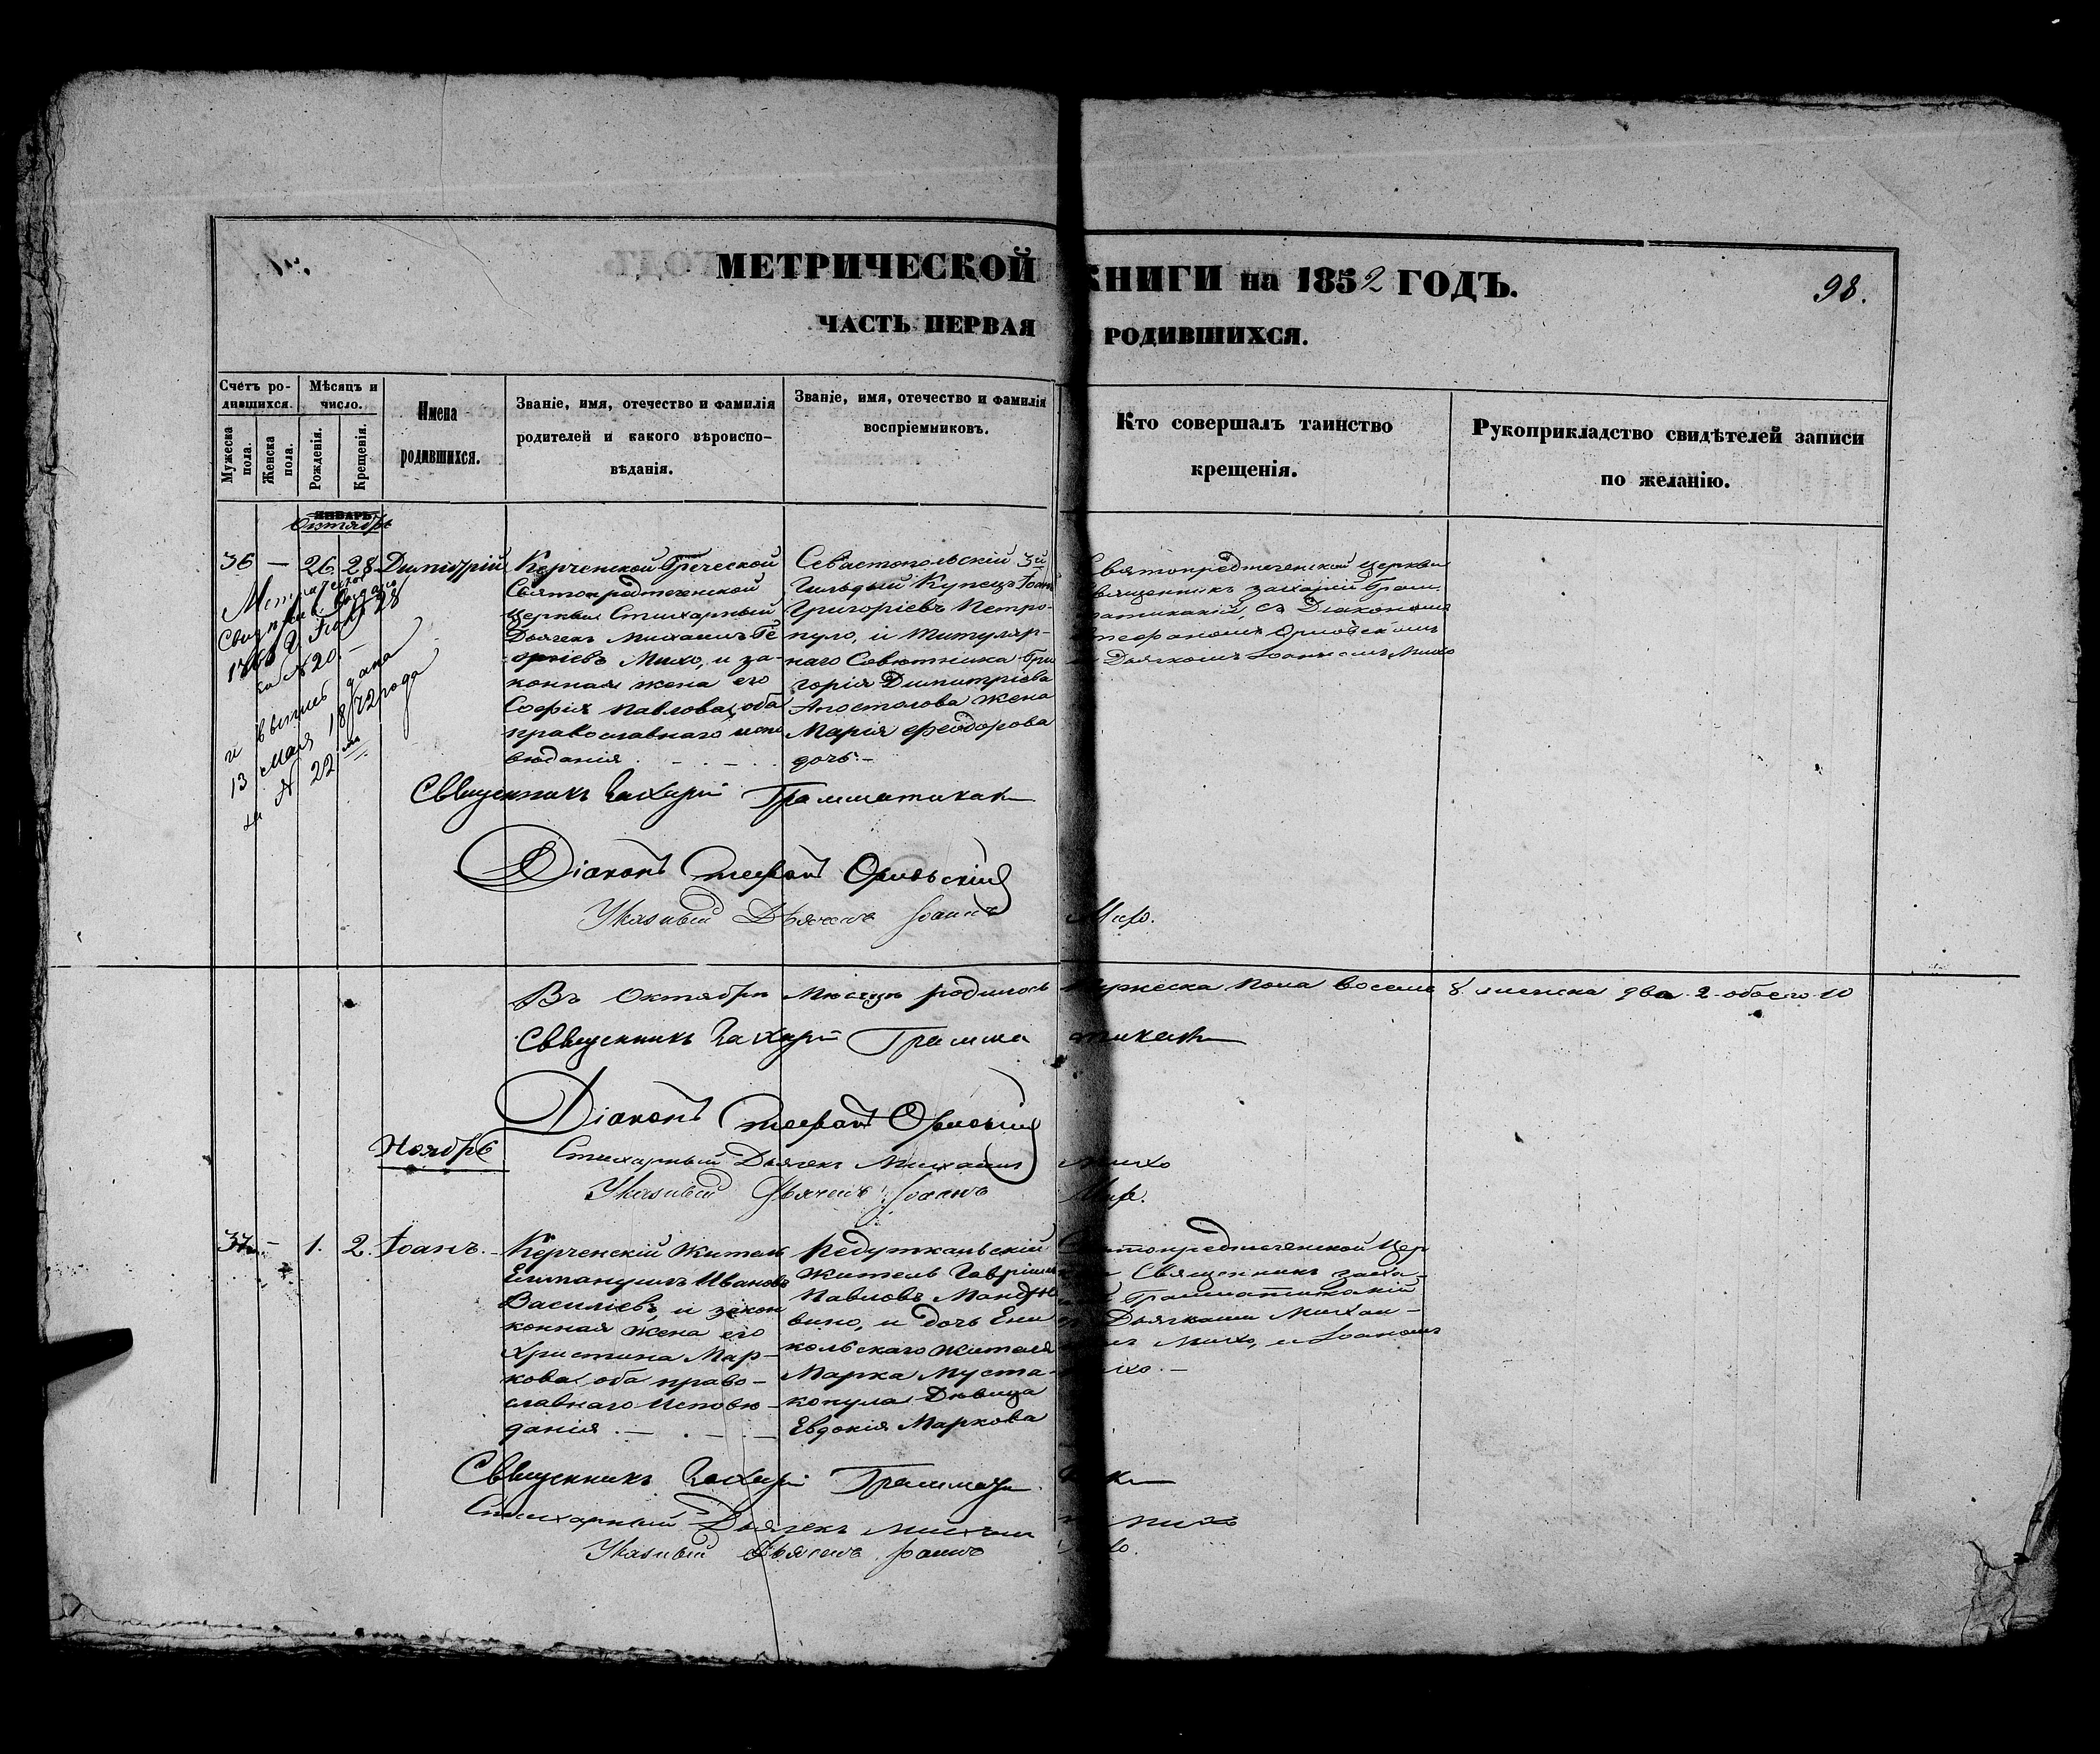 МЕТРИЧЕСКОЙ КНИГИ на 1852 ГОДЪ.
98.
ЧАСТЬ ПЕРВАЯ РОДИВШИХСЯ.
Счетъ ро-
дившихся.
Мужеска пола.
Женска пола.
Мѣсяцъ и
число.
Рожденія.
Крещенія.
Имена
родившихся.
Званіе, имя, отечество и фамилія
родителей и какого вѣроиспо-
вѣданія.
Званіе, имя, отечество и фамилія
воспріемниковъ.
Кто совершалъ таинство
крещенія.
Рукоприкладство свидѣтелей записи
по желанію.
ЯНВАРЬ
Октябрь
36 — 26. 28. Димитрій
Керченской Греческой
Святопредтеченской
Церкви Стихарный
Дьячекъ Михаилъ Ге
оргіевъ Михо, и за-
конная жена его
Софія Павлова, оба
православнаго испо
вѣданія.
Севастопольскій 3й
Гильдіи Купецъ Іоан
Григоріевъ Петро-
пуло, и Титуляр-
наго Совѣтника Гри
горія Димитріева
Апостолова жена
Марія Феодорова
дочь.—
Святопредтеченской церкви
Священникъ Захарій Грам.
матикакій съ Діакономъ
Стефаномъ Орловскимъ
Дьячкомъ Іоанномъ Михо
и выпись дана
13 Мая 1872 года
за № 22
Священникъ Захарій Грамматикаки
Діаконъ Стефанъ Орловскій
Указный Дьячекъ Іоаннъ Михо.
Въ Октябрѣ Мѣсяцѣ родилось мужеска пола восемь 8. женска два 2. обоего 10
Священникъ Захарій Грамматикаки
Діаконъ Стефанъ Орловскій
Ноябрь
Стихарный Дьячекъ Михаилъ Михо
Указный Дьячекъ Іоаннъ Михо.
37. — 1. 2. Іоанъ.
Керченскій Житель
Еммануилъ Ивановъ
Василіевъ, и закон
конная жена его
Христина Мар-
кова оба право-
славнаго Исповѣ-
данія.
Редуткальскій
житель Гавріилъ
Павловъ
вино, и дочь Ени
кольскаго жителя
Марка Муста-
копула Дѣвица
Евдокія Маркова
Святопредтеченской Цер
Священникъ Заха-
Грамматикакій
Дьячками Михаи-
Михо, и Іоаномъ
Михо.—
Священникъ Захарій Грамматикаки
Стихарный Дьячекъ Михаилъ Михо
Указный Дьячекъ Іоаннъ Михо.